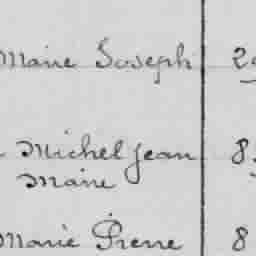 Marie Joseph 2
Michel Jean 8
Marie
Marie Pierre 8